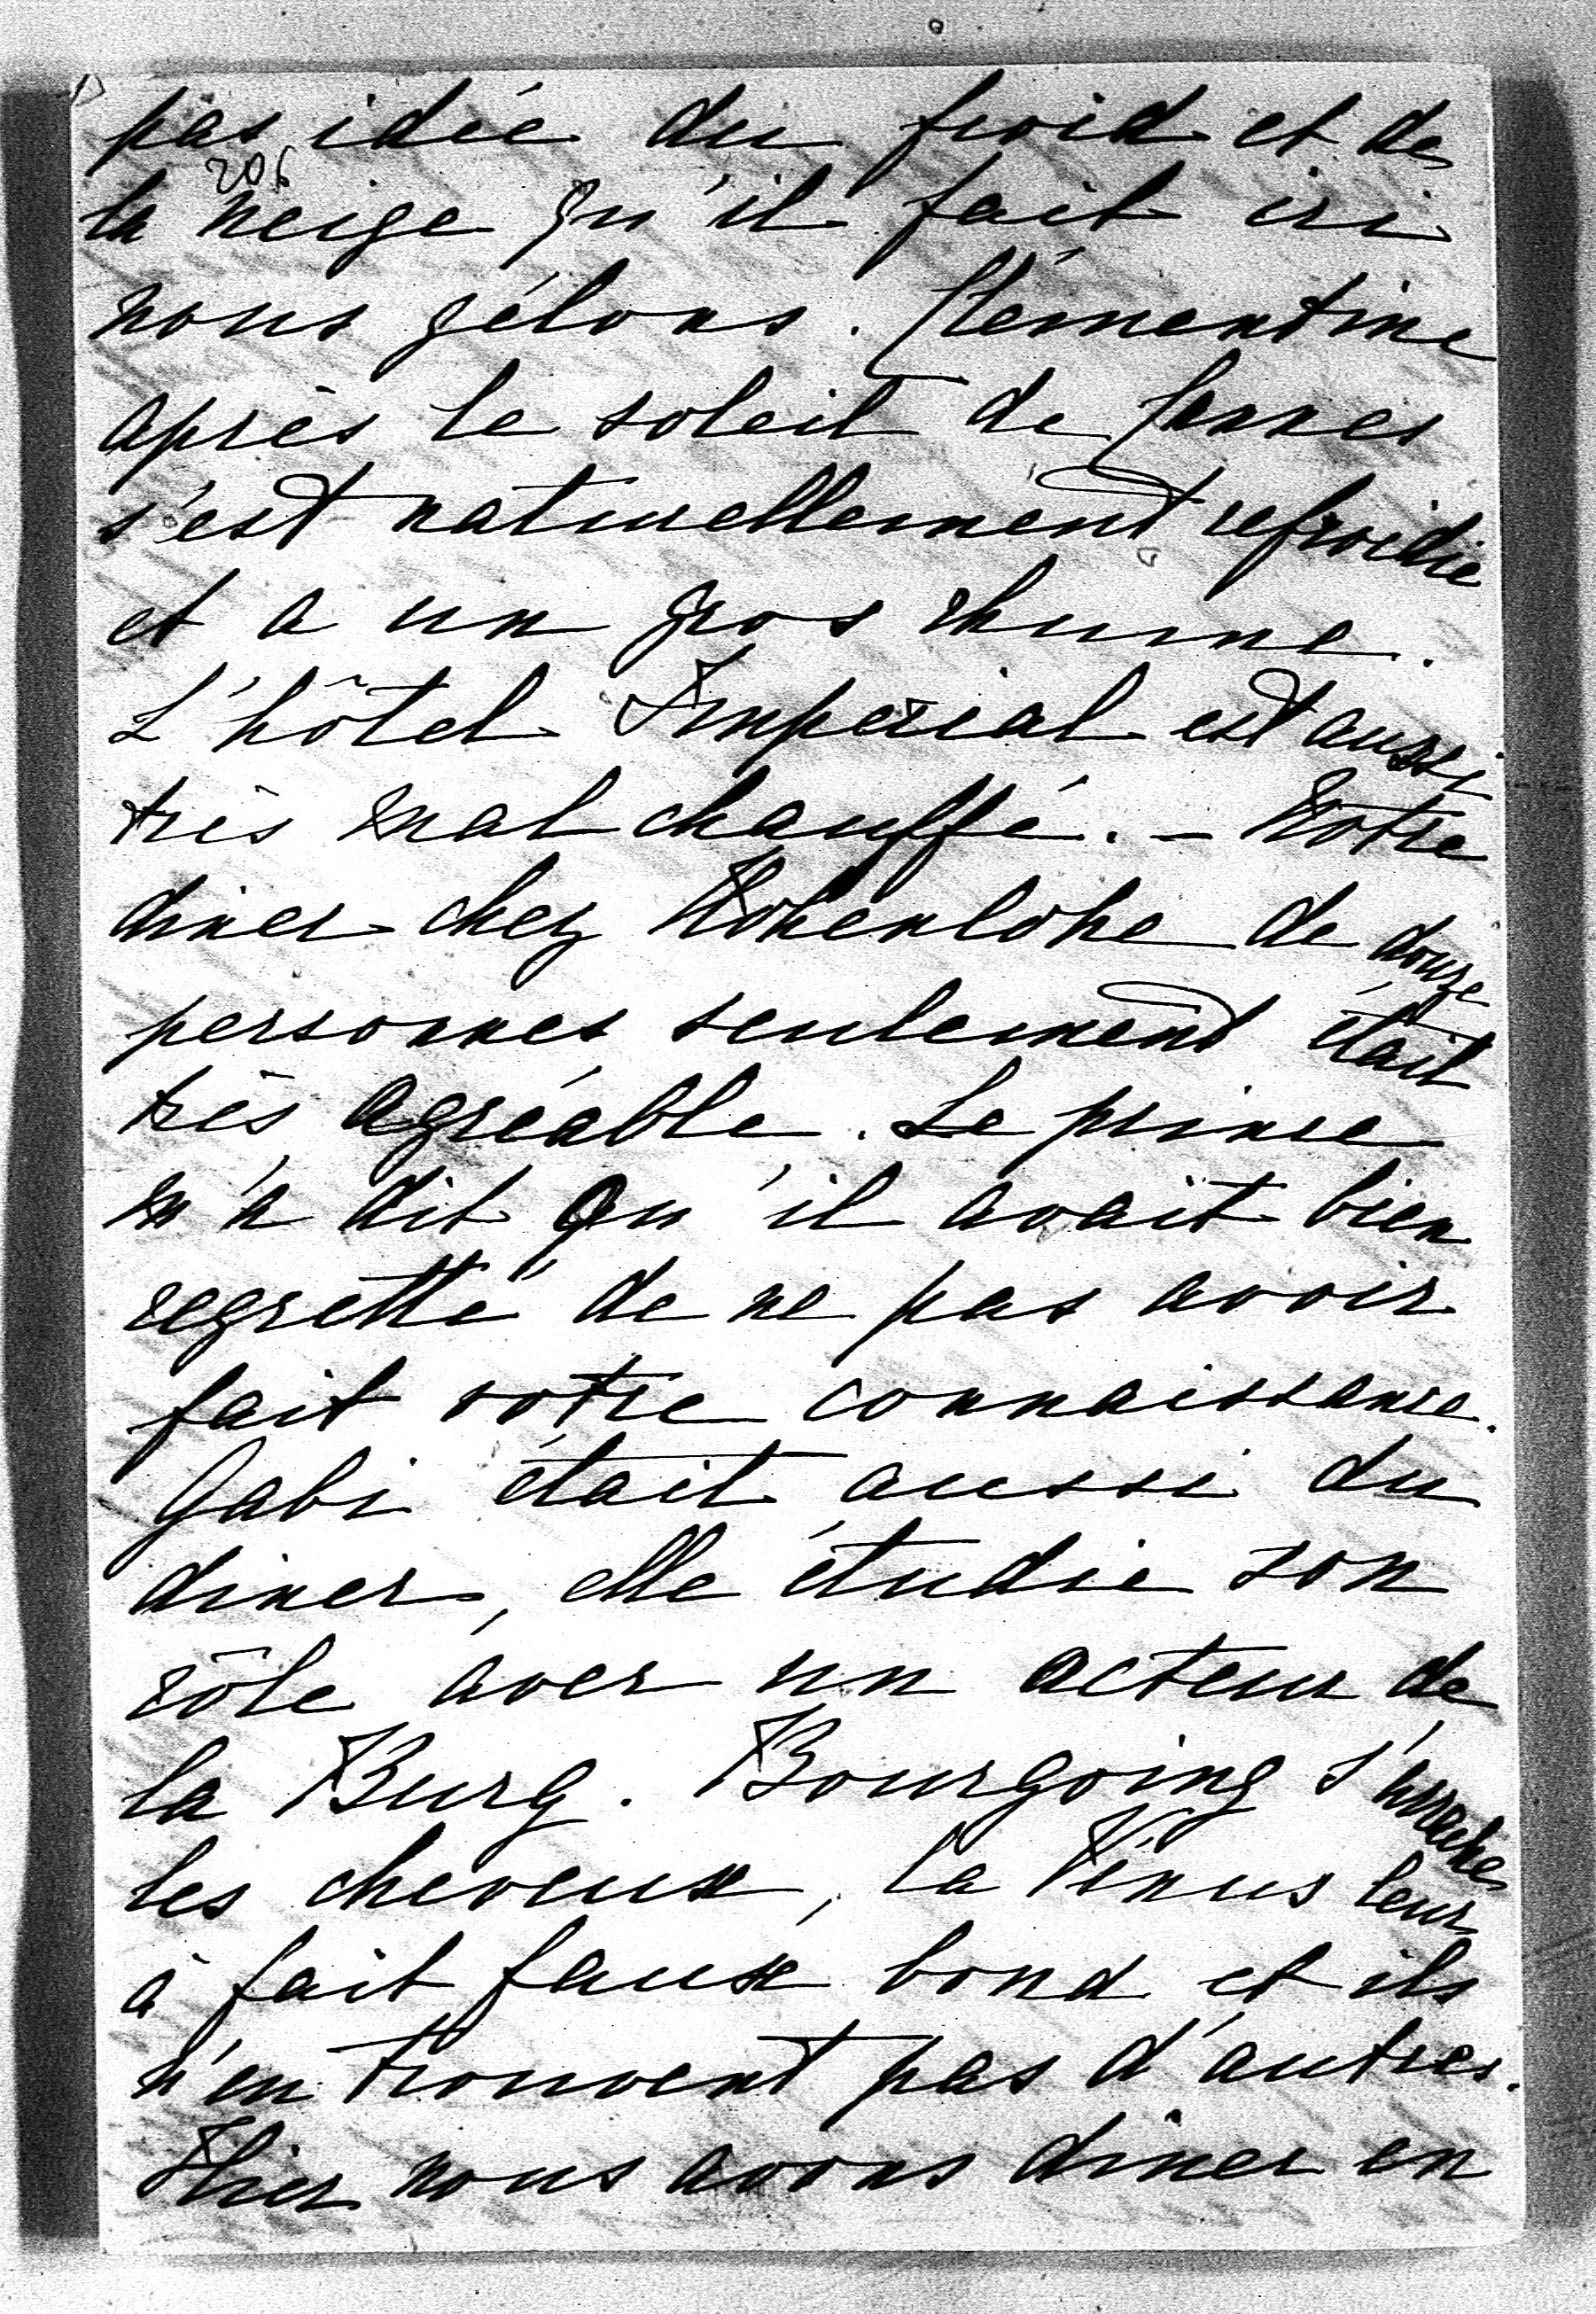 pas idée du froid et de
206
la neige qu'il fait ici
nous gélons. Clémentine
après le soleil de Cannes
s'est naturellement refroidie
et a un gros rhume.
L'hôtel Imperial est aussi
très mal chauffé. - Notre
diner chez Hohenlohe de douze
personnes seulement était
très agréable. Le prince
m'a dit qu'il avait bien
regretté de ne pas avoir
fait votre connaissance.
Gabi était aussi du
diner, elle étudie son
rôle avec un acteur de
la Burg. Bourgoing s'arrache
les cheveux, la Vénus leur
à fait faux bond et ils
n'en trouvent pas d'autres.
Hier nous avons diner en